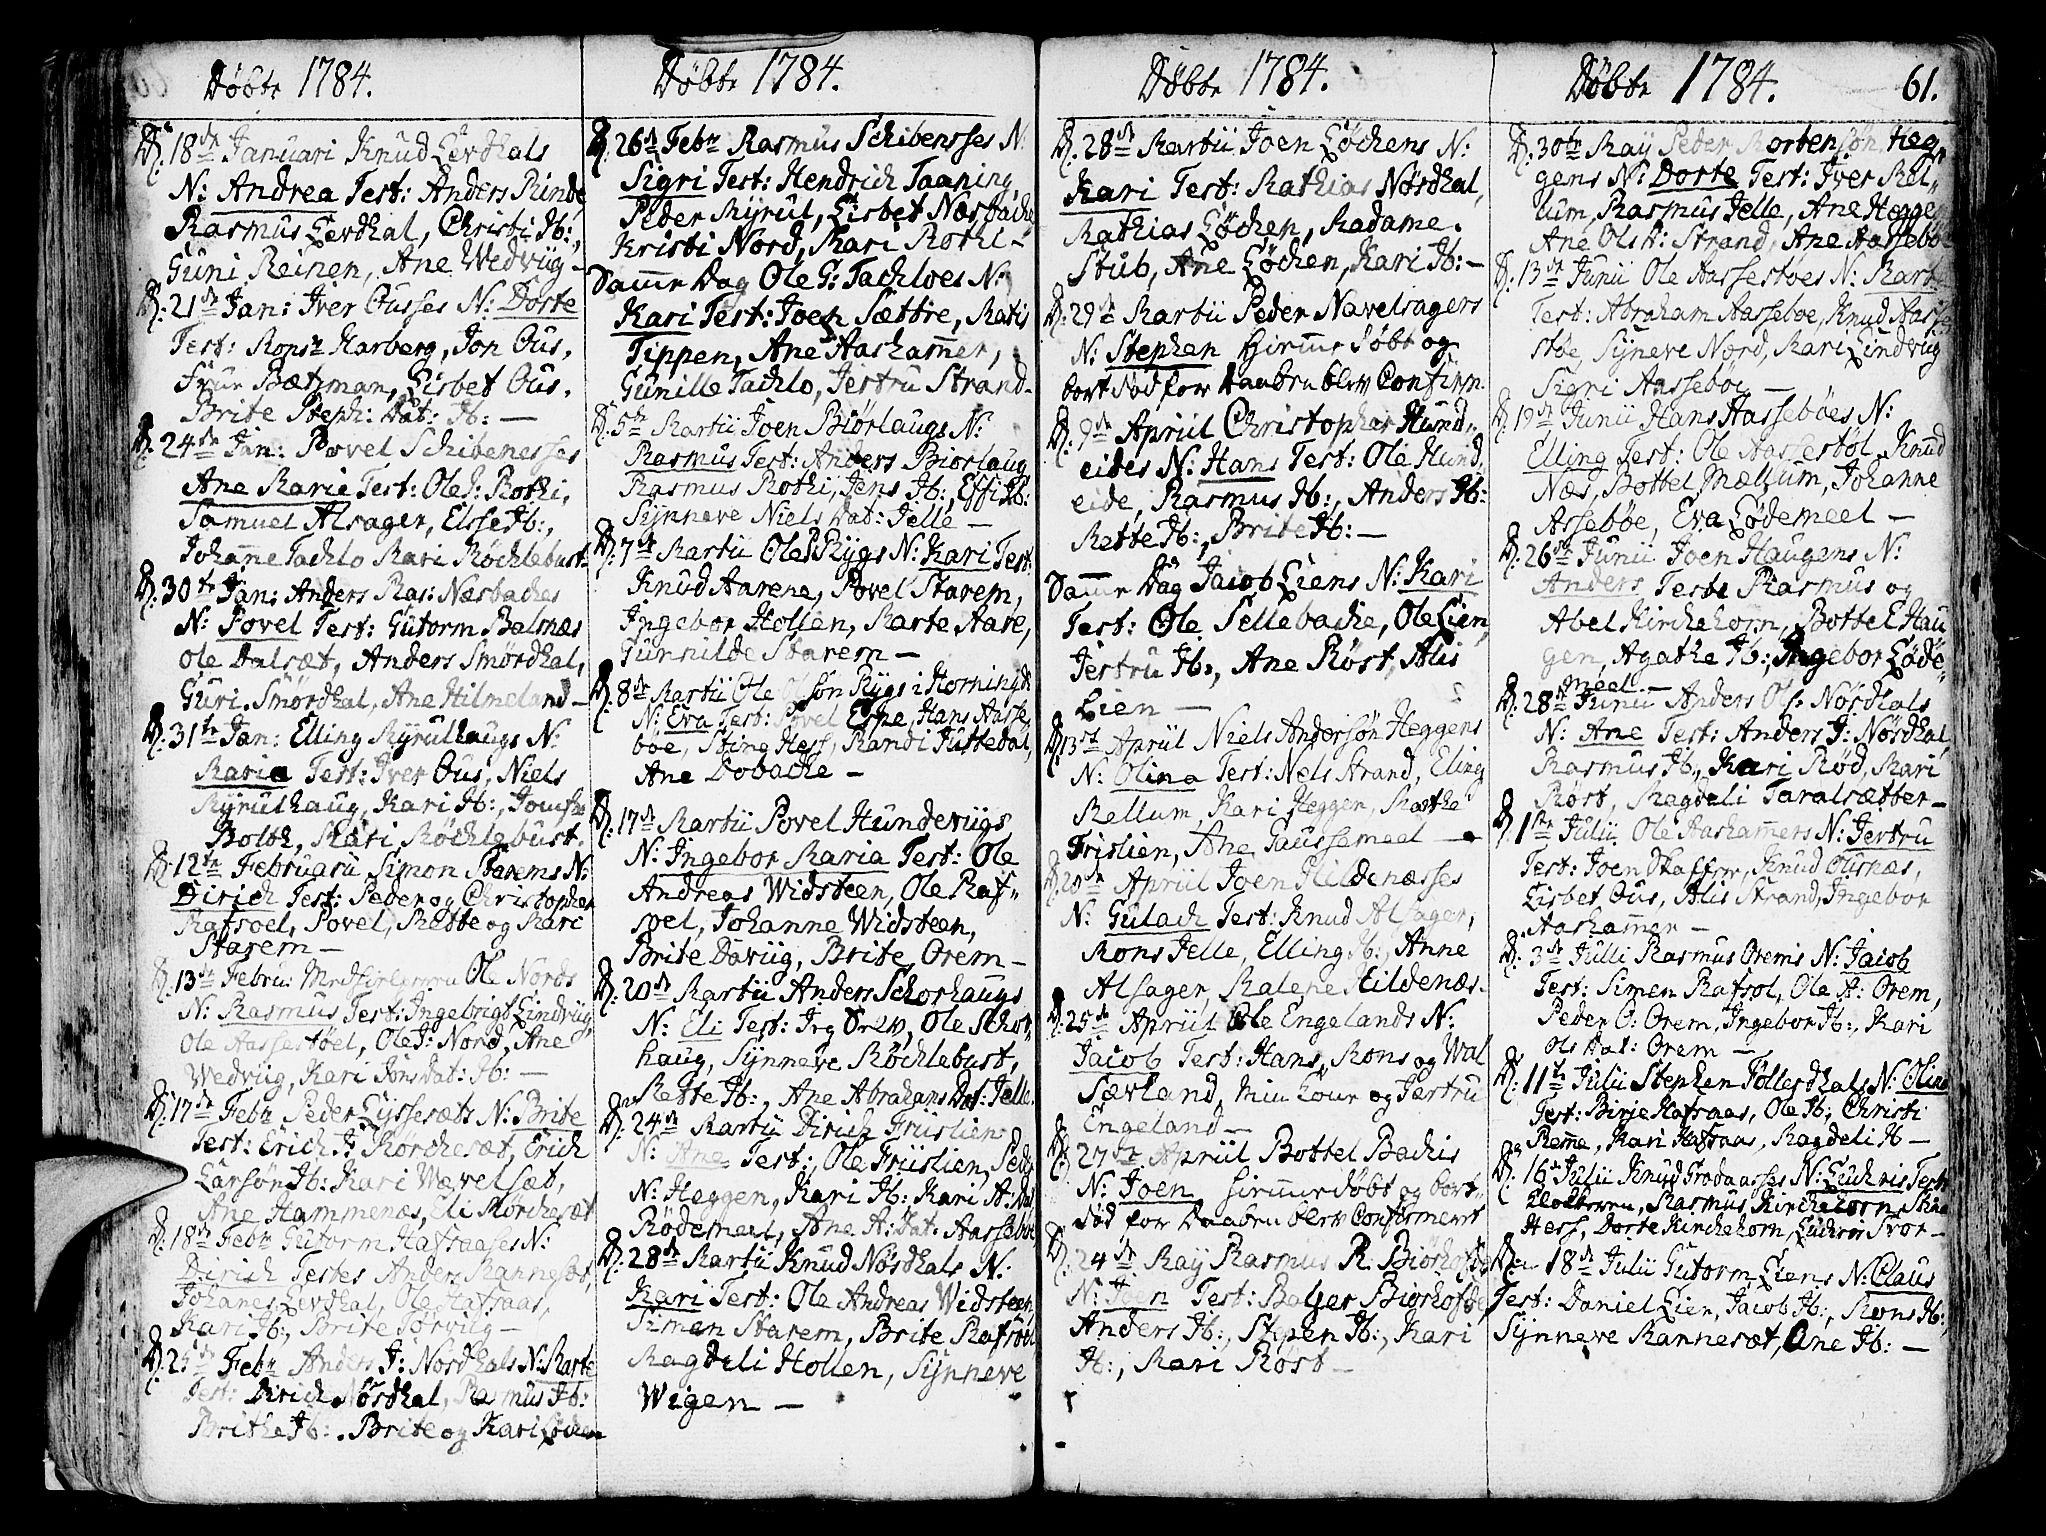 Döbte 1784.
D: 18de Januari Knud Lerdhals
N: Andrea Test: Anders Rinde,
Rasmus Lerdhal, Christi Ib:,
Guni Reinen, Ane Wedvüg –
D: 21de Jan: Iver Ouses N: Dorte
Test: Mons Harberg, Jon Ous,
Frue Bætzman, Lisbet Ous,
Brite Steph: Dat: Ib: –
D. 24de Jan: Povel Schibenesses
Ane Marie Test: Ole J: Mothi,
Samuel Alsager, Elsse Ib:,
Johanne Tachlo Mari Röchlebust
D: 30te Jan: Anders Ras: Næsbaches
N: Povel Test: Gutorm Balnæs
Ole Dalsæt, Anders Smördhal,
Guri Smördhal, Ane Hilmeland –
D: 31te Jan: Elling Myrülhaugs N:
Maria Test: Iver Ous, Niels
Myrülhaug, Kari Ib:, Jomfr
Bolth, Mari Röchlebust.
D: 12te Februarii Simon Starems N:
Dirich Test: Peder og Christopher
Rafsoel, Povel, Mette og Mari
Starem –
D: 13de Febru: Ole Nords
N: Rasmus Test: Ingebrigt Lindvüg,
Ole Aassestöel, Ole J: Nord, Ane
Wedvüg, Kari Jons Dat: Ib: –
D: 17de Febr Peder Lyssesæts N: Brite
Test: Erich Mörchesæt, Erich
Larsön Ib: Kari Wævelsæt,
Ane Hammenæs, Eli Mörchesæt
D: 18de Febr Gutorm Hafraases N:
Dirich Testes Anders Mannesæt,
Johanes Lerdhal, Ole Hafraas,
Kari Ib:, Brite Torvüg –
D: 25de Febr Anders J: Nordhals N: Marte
Test: Dirich Nördhal, Rasmus Ib:
Brithe Ib:. Brite og Kari Löchen
Döbte 1784.
D. 26de Febr Rasmus Schibensses N:
Sigri Test: Hendrich Taaning,
Peder Myrül, Lisbet Næsbache
Kristi Nord, Mari Mothi –
Samme Dag Ole G: Tachloes N:
Kari Test: Joen Sættre, Matis
Tippen, Ane Aashammer,
Gunille Tachlo, Jertru Strand –
D: 5te Martii Joen Biörlaugs N:
Rasmus Test: Anders Biorlaug
Rasmus Mothi, Jens Ib:, Effi Ib:
Synneve Niels Dat: Jelle –
D: 7de Martii Ole Rygs N: Kari Test:
Knud Aarene, Povel Starem,
Ingebor Hollen, Marte Aare,
Gunnilde Starem –
D: 8de Martii Ole Olsön Rygs i Horningd:
N: Eva Test: Povel Espe, Hans Aasse
böe, Stine Hess, Randi Juttedal,
Ane Dobache –
D: 17de Martii Povel Hundevügs
N: Ingebor Maria Test: Ole
Andreas Widsteen, Ole Raf-
soel, Johanne Widsteen,
Brite Davüg, Brite Orem –
D: 20de Martii Anders Schorhaugs
N: Eli Test: Orem, Ole Schor
haug, Synneve Röchlebust,
Mette Ib:, Ane Abrahams Dat: Jelle.
D: 24de Martii Dirich Friislien
N: Ane Test:, Ole Friislien, Peder
N: Heggen, Kari Ib: Kari A: Dat
Rödemeel, Ane A: Dat: Aasseböe
D: 28de Martii Knud Nördhals N:
Kari Test: Ole Andreas Widsteen,
Simen Starem, Brite Rafsoel
Magdeli Hollen, Synneve
Wigen –
Döbte 1784.
D. 28de Martii Joen Löchens N:
Kari Test: Mathias Nördhal,
Mathias Löchen, Madame
Stub, Ane Löchen, Kari Ib: –
D: 29de Martii Peder Navelsagers
N: Stephen hiemme döbt og
bort död for Daaben blev Confirm.
D: 9de Apriil Christopher Hund-
eides N: Hans Test: Ole Hund
eide, Rasmus Ib:, Anders Ib:
Mette Ib:, Brite Ib: –
Samme Dag Jacob Liens N: Kari
Test: Ole Sellebache, Ole Lien,
Jertru Ib:, Ane Röst, Alis
Lien –
D: 13de Apriil Niels Andersön Heggens
N: Olina Test: Nels Strand, Eling
Mellum, Kari Heggen, Marthe
Frislien, Ane Gaussemeel –
D: 20de Apriil Joen Hildenæsses
N: Gulach Test: Knud Alsager,
Mons Jelle, Elling Ib:, Anne
Alsager, Malene Hildenæs.
D: 25de Apriil Ole Engelands N:
Jacob Test: Hans, Mons og Wal
Særland, min Kone og Jertru
Engeland –
D: 27de Apriil Bottel Bachis
N: Joen, hiemmedöbt og bort
död for Daaben blev Confirmert
D: 24de May Rasmus R. Biörhofde
N: Joen Test: Balzer Biörhofde,
Anders Ib:, Stepen Ib:, Kari
Ib:, Mari Röst –
Döbte 1784. 61.
D: 30te May Peder Mortensön Heg
gens N: Dorte Test: Iver Mel-
lum, Rasmus Jelle, Ane Heggen
Ane Ols D: Strand, Ane Aasseböe
D: 13de Junii Ole Aassestöes N: Mart
Test: Abraham Aasseboe, Knud Aasse
stöe, Synneve Nord, Mari Lindvüg
Sigri Aasseböe –
D: 19de Junii Hans Aasseböes N:
Elling Test: Ole Aassestöl, Knud
Næs, Bottel Mællum, Johanne
Asseböe, Eva Lödemeel –
D: 26de Junii Joen Haugens N:
Anders Teste Rasmus og
Abel Kirchehorn, Bottel Hau
gen, Agathe Ib:, Ingebor Löde-
meel –
D: 28de Junii Anders Ols: Nördhals
N: Ane Test: Anders J: Nördhal,
Rasmus Ib:, Kari Röd, Mari
Röst, Magdeli Taralsætter –
D: 1ste Julii Ole Aashamers N: Jertru
Test: Joen Skaffer, Knud Ousnæs,
Lisbet Ous, Alis Strand, Ingebor
Aashammer –
D: 3de Julii Rasmus Orems N: Jacob
Test: Simen Rafsol, Ole A: Orem,
Peder O: Orem, Ingebor Ib:, Kari
Ols Dat: Orem –
D: 11te Julii Stephen Fölledhals N: Olina
Test: Birje Hafraas, Ole Ib:, Christi
Remme, Kari Hafraas, Magdeli Ib –
D: 16de Julii Knud Grodaasses N: Luchris Test:
Klocheren, Rasmus Kirchehorn, Stina
Hess, Dorte Kirchehorn, Luchris Tvor –
D: 18de Julii Gutorm Liens N: Claus
Test: Daniel Lien, Jacob Ib:, Mons Ib:,
Synneve Mannesæt, Ane Ib: –